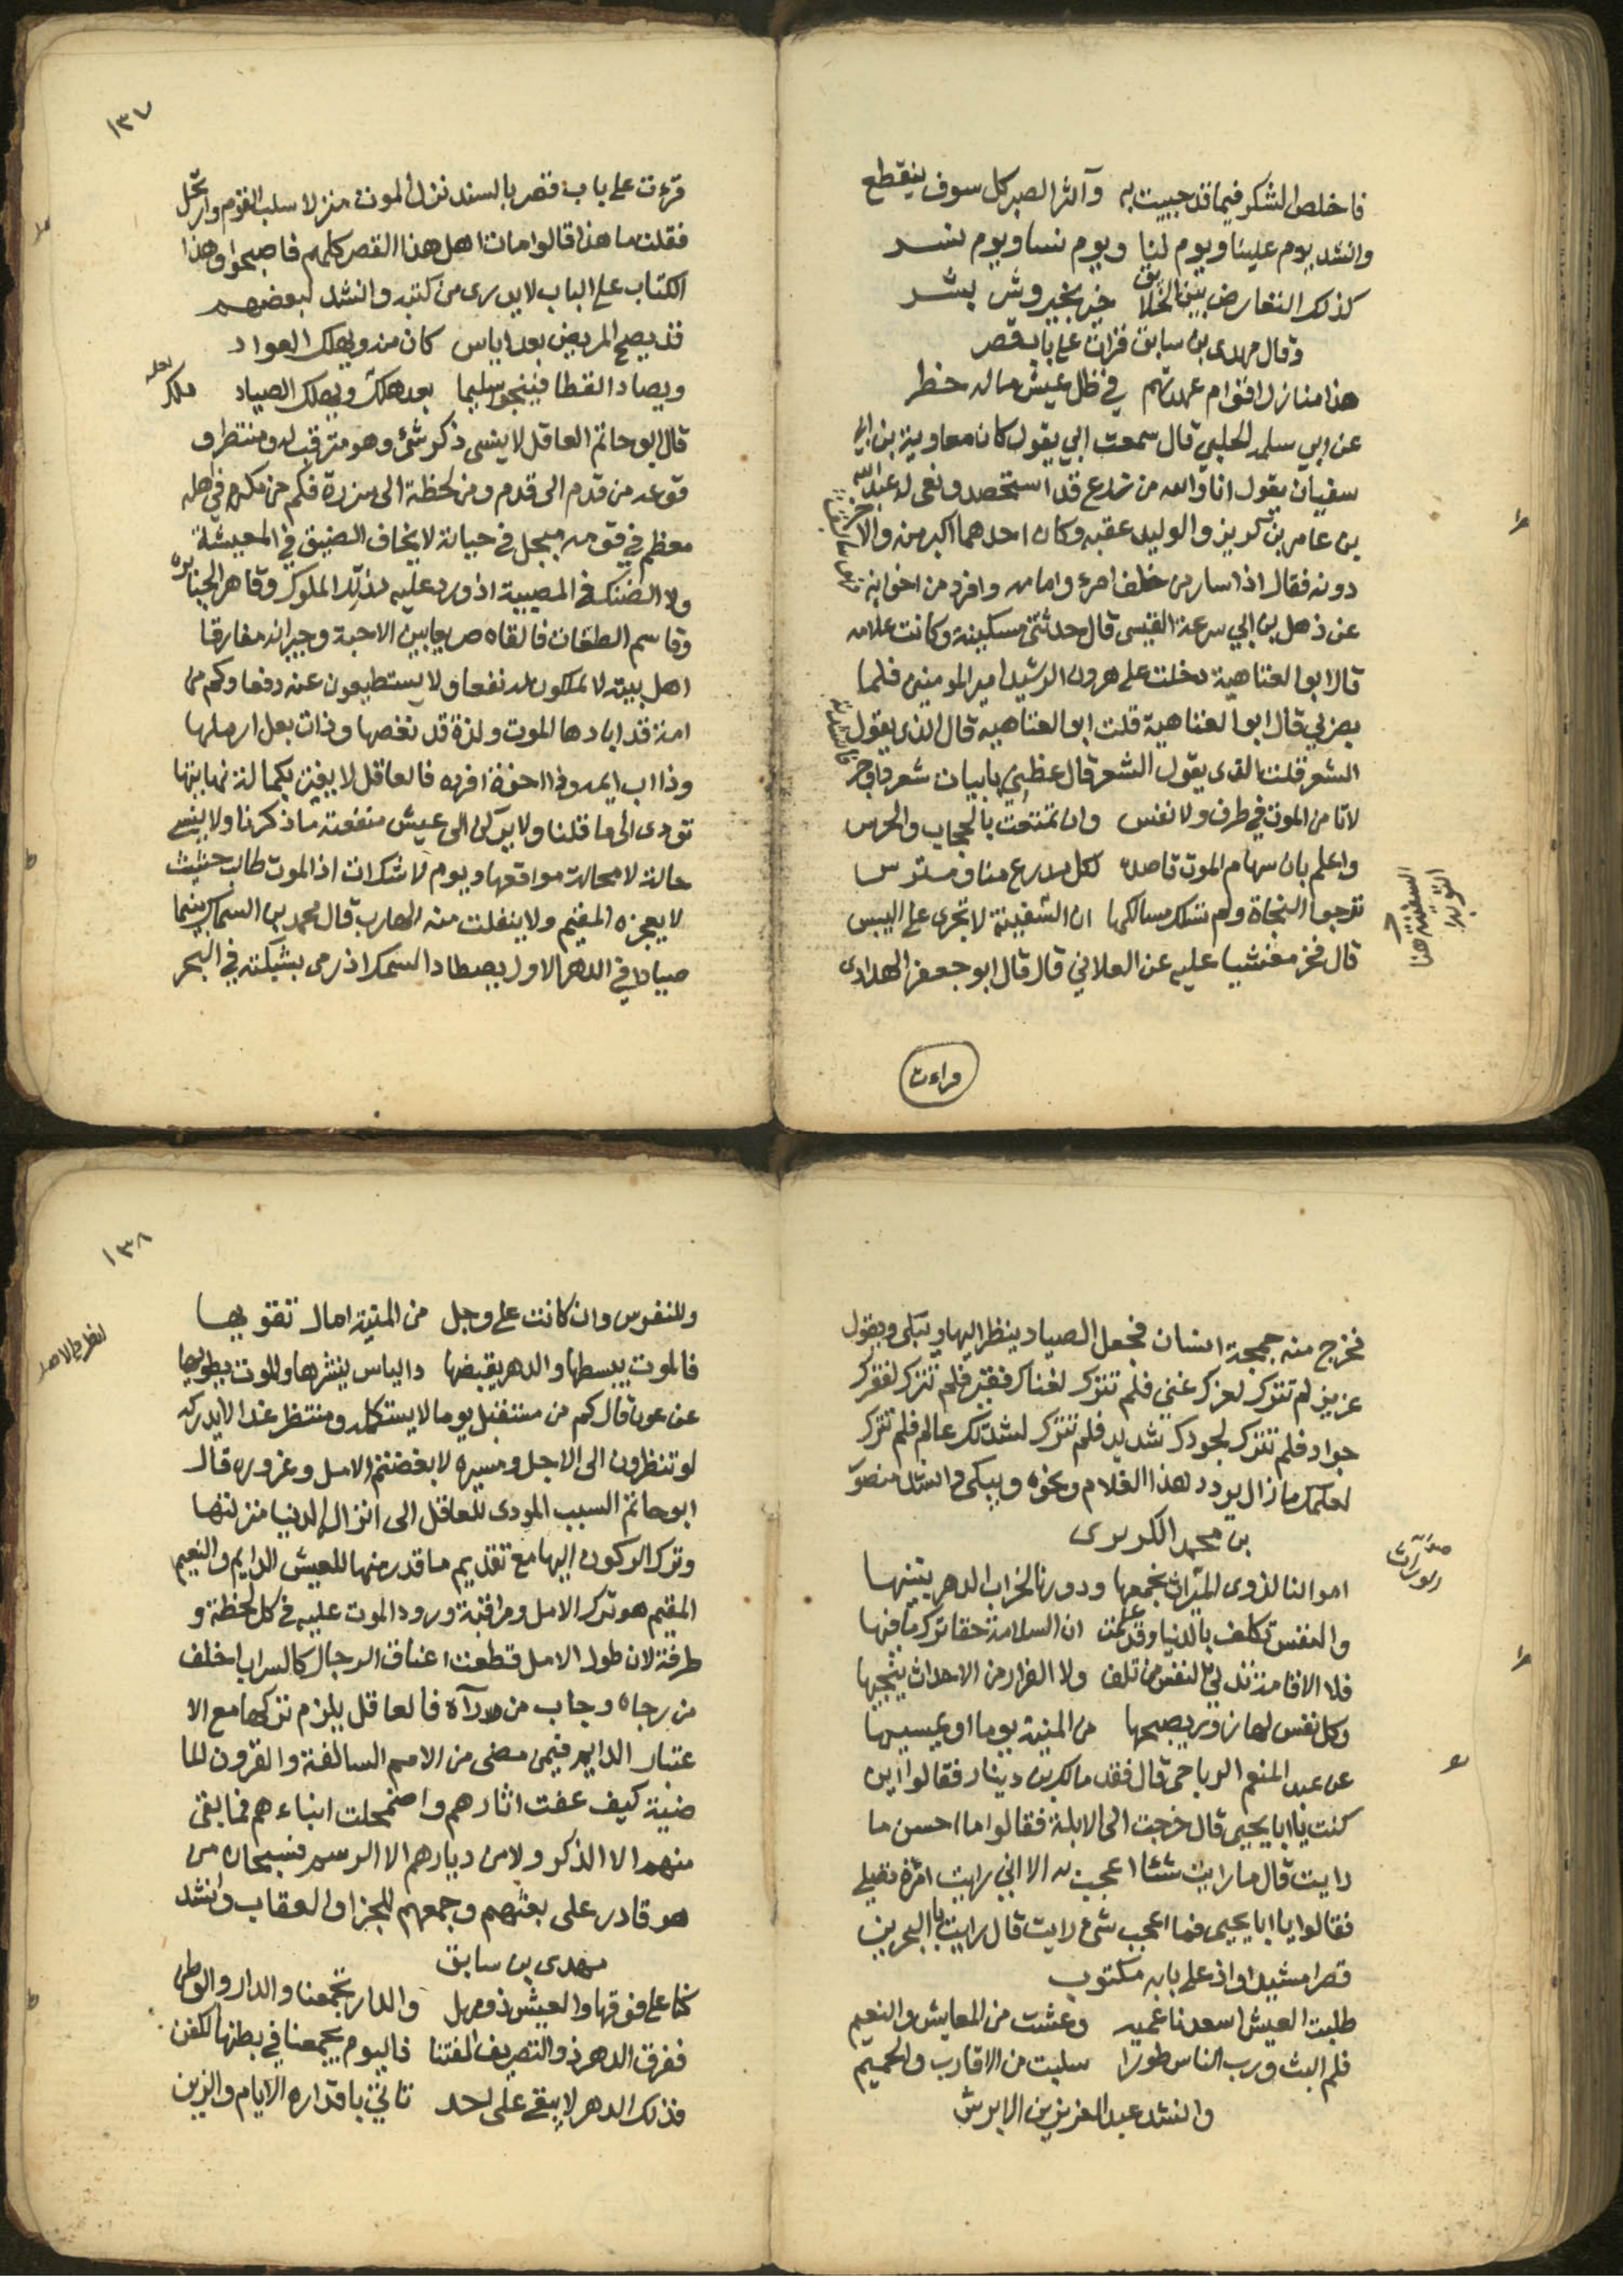 فاخلص الشكر فيما قد حبيت به وآثر الصبر كل سوف ينقطع
وانشد يوم علينا ويوم لنا ويوم نسا ويوم نسر
كذلك التعارض بين الخلايق خير بخير وشر بشر
وقال مهدى بن سابق قرات على باب قصر
هذا منازل اقوام عهدتهم في ظل عيش ماله خطر
عن ابي سلمه الحلبي قال سمعت ابي يقول كان معاوية بن ابي
سفيان يقول انا والله من زرع قد استحصد ونعى له عبد الله
بن عامر بن كريز والوليد عقبه وكان احدهما اكبر منه والاخر
دونه فقال اذا سار من خلف امرء وامامه وافرد من اخوانه
عن ذهل بن ابي سرعة القيسى قال حدثتى مسكينة وكانت علامه
قال ابو العتاهية دخلت على هرون الرشيد امير المومنين فلما
بصر بي قال ابو العتاهية قلت ابو العتاهيه قال الذى يقول
الشعر قلت الذى يقول الشعر قال عظني بابيات شعر واوجز
لا تامن الموت في طرف ولا نفس وان تمتعت بالحجاب والحرس
واعلم بان سهام الموت قاصده لكل مدرع منا ومترس
ترجوا النجاة ولم تسلك مسالكها ان السفينة لا تجرى على اليبس
قال فخر مغشيا عليه عن العلاني قال قال ابو جعفر الهدادى
السفينة هنا
قراءت
١٣٧
قرءت على باب قصر بالسند نزل الموت منزلا سلب القوم وارتحل
فقلت ما هذا قالوا مات اهل هذا القصر كلهم فاصبحوا وهذا
الكتاب على الباب لا يدرى من كتبه وانشد لبعضهم
قد يصح المريض بعد اياس كان منه ويهلك العواد
ويصاد القطا فينجو سليما بعد هلك ويهلك الصياد
قال ابو حاتم العاقل لا ينسى ذكر شئ وهو مترقب له ومنتظر و
قوعه من قدم الى قدم ومن لحظة الى شزرة فكم من مكرم في اهله
معظم في قومه مبجل في حياته لا يخاف الضيق في المعيشة
ولا الضنك في المصيبة اذ ورد عليه مذلل الملوك وقاهر الجبابره
وقاسم الطغات فالقاه صريعا بين الاحبة وجيرانه مفارقا
اهل بيته لا يملكون له نفعا ولا يستطيعون عنه دفعا وكم من
امة قد ابادها الموت ولذة قد نغصها وذات بعل ارملها
وذا اب ايتمه وذا اخوة افرده فالعاقل لا يغتر بحالة نهايتها
تودى الى ما قلنا ولا يركن الى عيش منغصته ما ذكرنا ولا ينسى
حالة لا محالة مواقعها ويوم لا شك ات اذ الموت طالب حثيث
لا يعجزه المقيم ولا ينفلت منه الهارب قال محمد بن السماك بينما
صيادا في الدهر الاول يصطاد السمك اذ رمى بشبكته في البحر
فخرج منه جمجمة انسان فجعل الصياد ينظر اليها ويبكى ويقول
عزيز لم تترك لعزك غني فلم تترك لغناك فقير فلم تترك لفقرك
جواد فلم تترك لجودك شديد فلم تترك لشدتك عالم فلم تترك
لعلمك ما زال يردد لهذا الغلام ونحوه ويبكى وانشد منصور
بن محمد الكريرى
اموالنا لذوى الميراث نجمعها ودورنا لخراب الدهر نبنيها
والنفس تكلف بالدنيا وقد علمت ان السلامة حقا ترك ما فيها
فلا الاقامة تنجي النفس من تلف ولا الفرار من الاحداث ينجيها
وكل نفس لها زور يصبحها من المنية يوما او يمسيها
عن عبد المنعم الرياحى قال فقد مالك بن دينار فقالوا اين
كنت يا ابا يحيى قال خرجت الى الابلة فقالوا ما احسن ما
رايت قال ما رايت شئا اعجب به الا اني رايت امرة تصلي
فقالوا يا ابا يحيى فما اعجب شئ رايت قال رايت بالبحرين
قصرا مشيدا واذ على بابه مكتوب
طلبت العيش اسعدنا عمير وعشت من المعايش والنعيم
فلم البث ورب الناس طورا سلبت من الاقارب والحميم
وانشد عبد العزيز بن الابرش
١٣٨
وللنفوس وان كانت على وجل من المنية امال تقويها
فالموت يبسطها والدهر يقبضها والياس ينشرها والموت يطويها
عن عون قال كم من مستقبل يوما لا يستكمله ومنتظر غدا لا يدركه
لو تنظرون الى الاجل ومسيره لابغضتم الامل وغروره قال
ابو حاتم السبب المودى للعاقل الى انزال الدنيا منزلتها
وترك الركون اليها مع تقديم ما قدر منها للعيش الدايم والنعيم
المقيم هو ترك الامل ومراقبة ورود الموت عليه في كل لحظة و
طرفة لان طول الامل قطعت اعناق الرجال كالسراب اخلف
من رجاه وخاب من رآه فالعاقل يلزم تركها مع الا
عتبار الدايم فيمن مضى من الامم السالفة والقرون الما
ضية كيف عفت اثارهم واضمحلت انباءهم فما بقى
منهم الا الذكر ولا من ديارهم الا الرسم فسبحان من
هو قادر على بعثهم وجمعهم للجزا والعقاب وانشد
مهدى بن سابق
كنا على فوقها والعيش ذو مهل والدار تجمعنا والدار والوطن
ففرق الدهر ذو التصريف الفتنا فاليوم يجمعنا في بطنها الكفن
فذلك الدهر لا يبقى على احد تاتي باقداره الايام والزمن